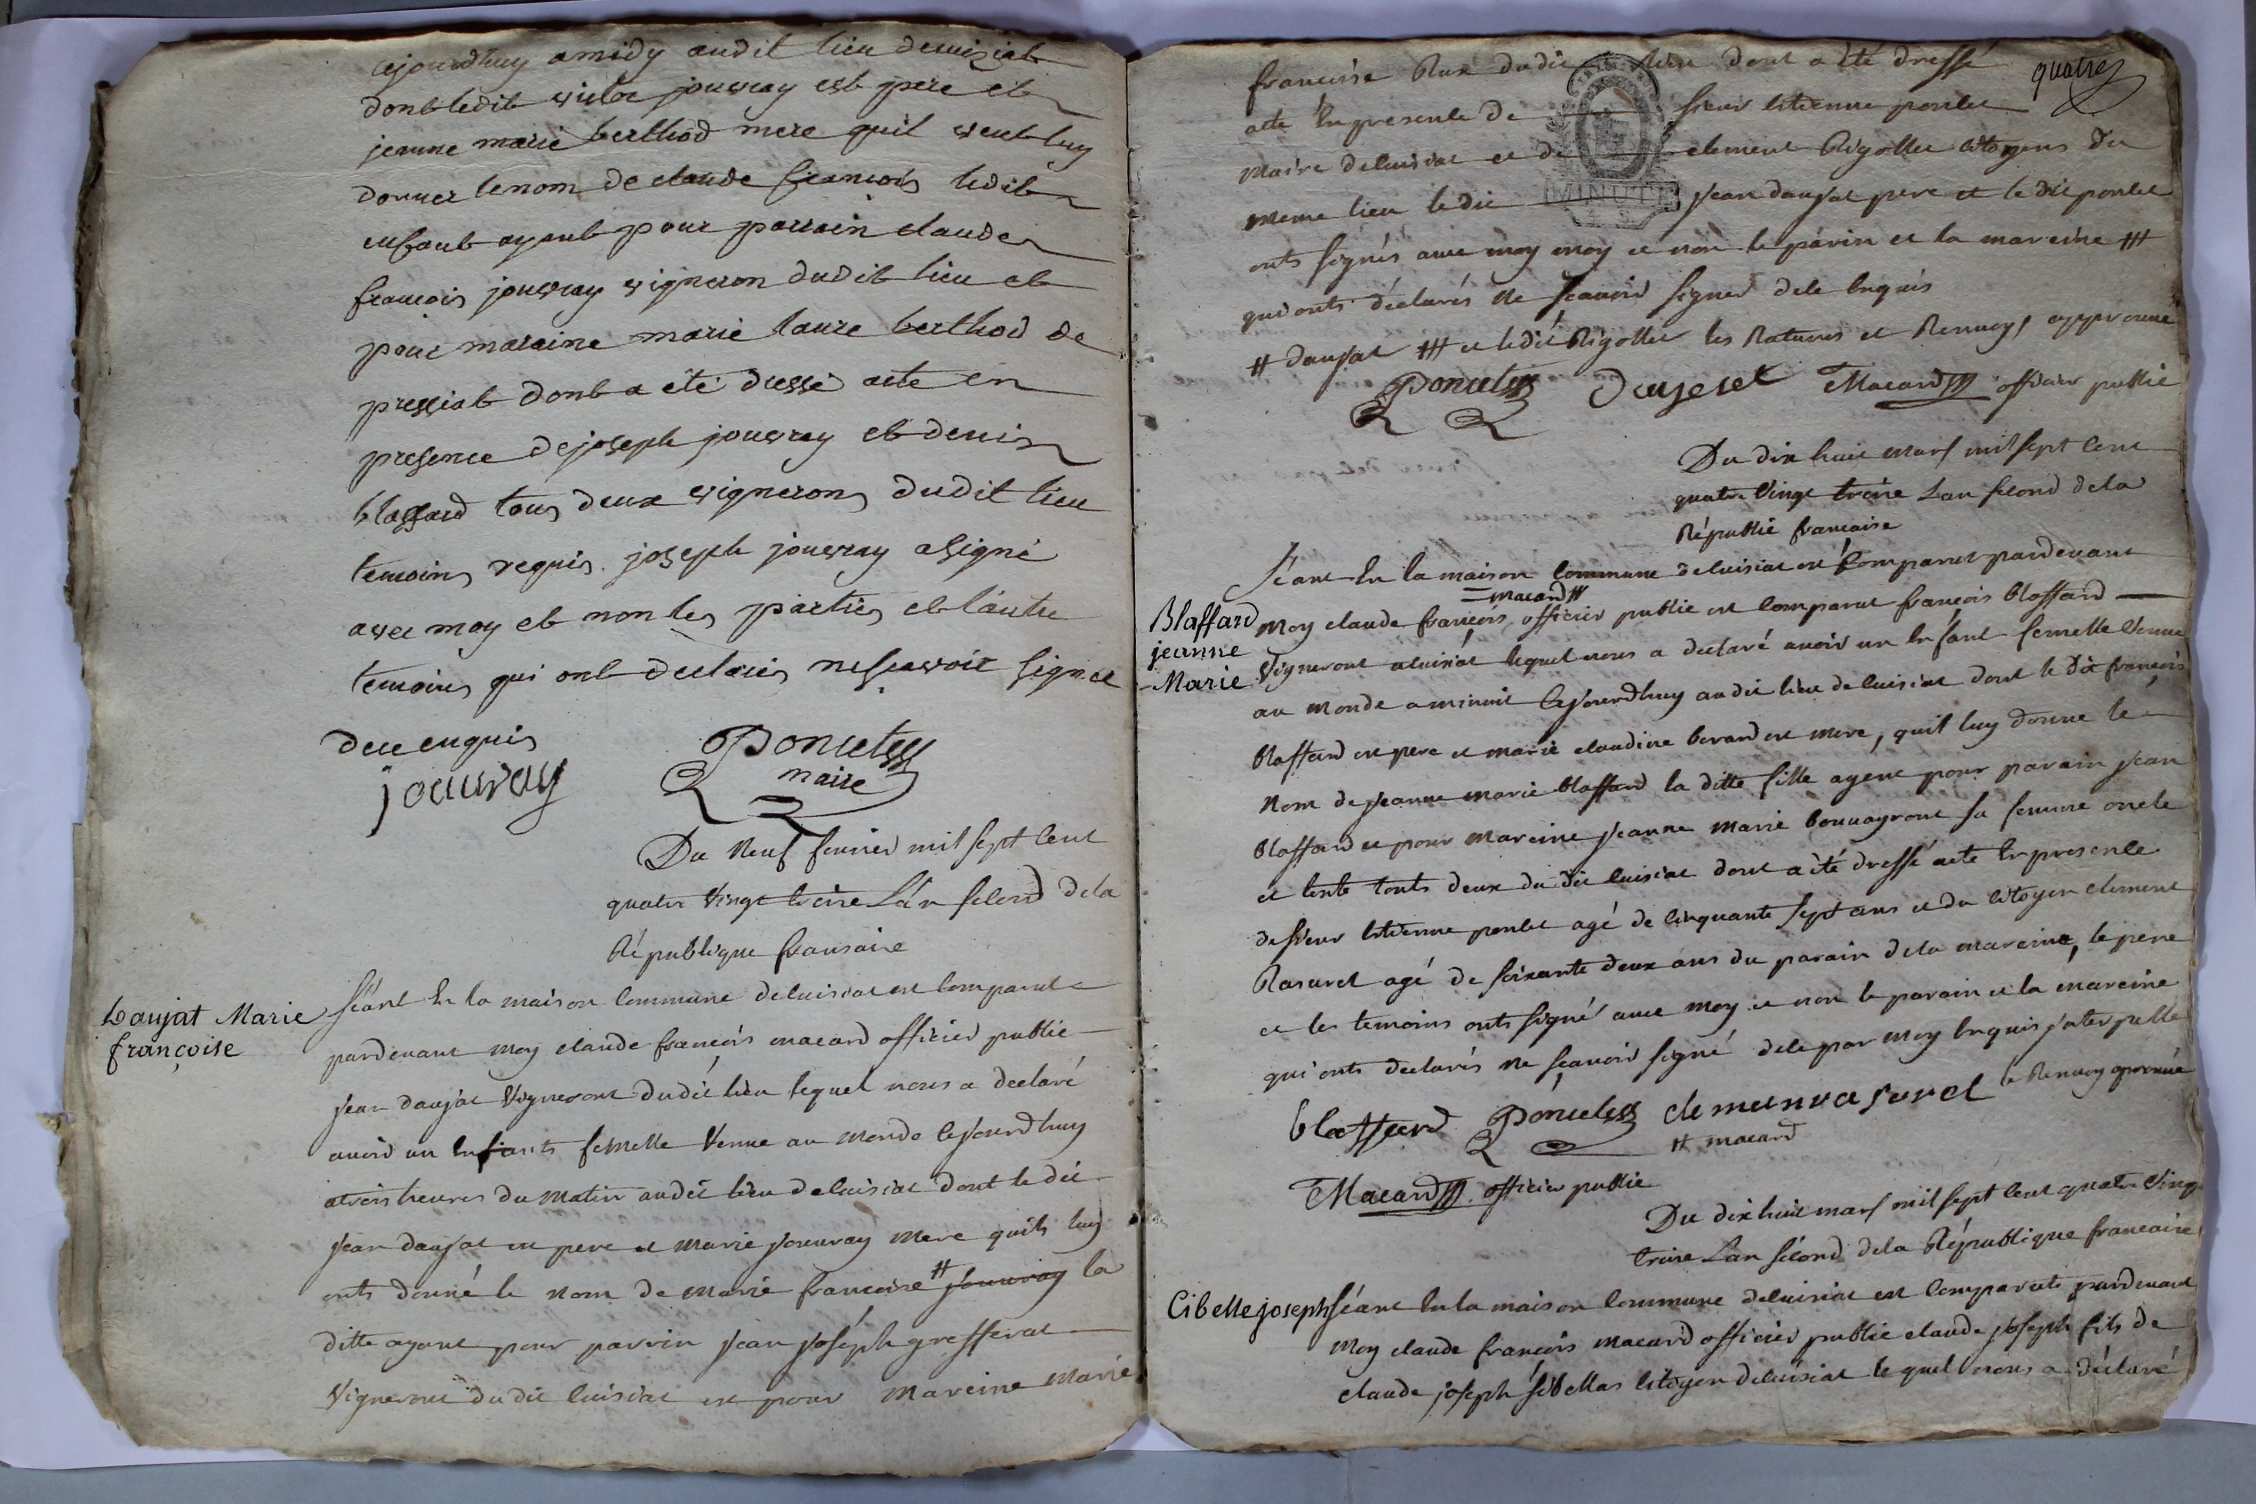 cejourdhuy a midy audit lieu deluisiat
dont ledit victor jouvray est pere et
jeanne marie berthod mere quil veut luy
donner le nom de claude françois ledit
enfant ayant pour parrain claude
françois jouvray vigneron dudit lieu et
pour maraine marie laure berthod de
pressiat dont a été dressé acte en
presence de joseph jouvray et denis
blaffard tous deux vignerons dudit lieu
temoins requis joseph jouvray a signé
avec moy et non les parties et lautre
temoins qui ont declarés ne scavoir signer
de ce enquis
jouvray Poncet
maire
Du neuf fevrier mil sept cent
quatre vingt treize L'an second de la
République fransaise
Daujat Marie
françoise
séant en la maison commune deluisiat est comparut
pardevant moy claude françois macard officier public
jean daujat vigneront dudit lieu lequel nous a declaré
avoid un enfants femelle venue au monde cejourdhuy
atrois heures du matin audit lieu deluisiat dont le dit
jean daujat est pere et marie jouvray mere quils luy
onts donné le nom de marie francoise # jouvray la
ditte ayant pour parrin jean joséph greffferat
vigneront du dit luisiat et pour mareine marie
quatre
francoise Rux dudit lieu dont a été dressé
acte en presence de sieur Etienne poncet
maire deluisiat et de clement Rigollet citoyens du
meme lieu le dit jean daujat pere et le dit poncet
onts signés avec moy moy et non le parin et la mareine ##
qui onts déclarés ne scavoir signer dele enquis
MINUTE
# daujat ## et ledit Rigollet les Ratures et Renvoy, approuvé
Poncet daujat Macard officier public
Du dix huit mars mil sept cent
quatre vingt treize L'an second dela
Républic francaise
Blaffard
jeanne
Marie
séant en la maison commune deluisiat est comparut pardevant
macard #
moy claude françois officier public est comparut françois blaffard
vigneront a luisiat lequel nous a declaré avoir un enfant femelle venue
au monde a minuit cejourdhuy audit lieu deluisiat dont le dit françois
blaffard est pere et marie claudine berard est mere, quil luy donne le
nom de jeanne marie blaffard la ditte fille ayent pour parain jean
blaffard et pour mareine jeanne marie bouvayront sa femme oncle
et tente touts deux du dit luisiat dont a été dressé acte en presence
de sieur Etienne poncet agé de cinquante sept ans et du citoyen clement
Rasurel agé de soixante deux ans du parain dela mareine, le pere
et les temoins onts signé avec moy et non le parain et la mareine
qui onts declarés ne scavoir signé dele par moy enquis jnterpellé
blaffard Poncet clemenrasurel le Renvoy aprouvé
# macard
Macard officier public
Du dix huit mars mil sept cent quatre vingt
treise L'an second dela République francaise
Cibelle joseph
séant en la maison commune deluisiat est comparute pardevant
moy claude françois macard officier public claude joseph fils de
claude joseph sibellas citoyen deluisiat le quel nous a déclaré